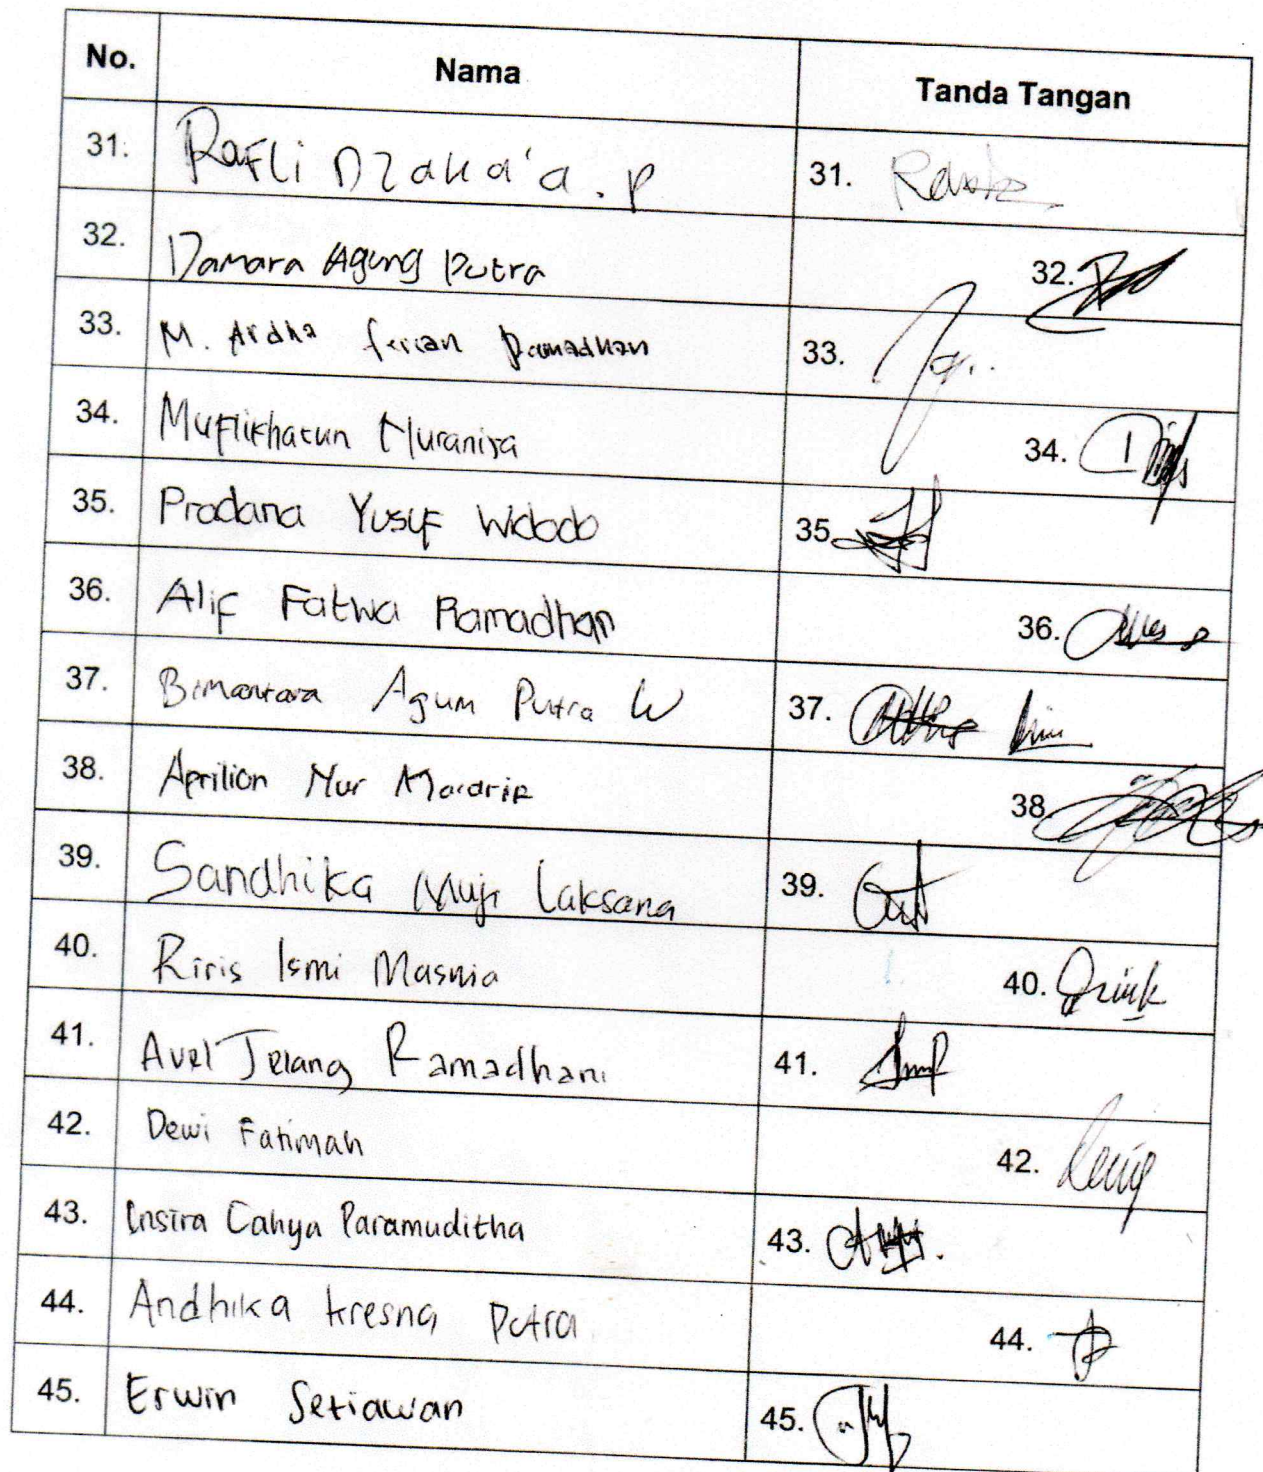 No. Nama Tanda Tangan
31. Rafli Dzaka'a. P 31.
32. Damara Agung Putra 32.
33. M. Ardha ferian Ramadhan 33.
34. Muflikhatun Nuranisa 34.
35. Pradana Yusuf Widodo 35.
36. Alif Fatwa Ramadhan 36.
37. Bimantara Agum Putra W 37.
38. Aprilian Nur 38.
39. Sandhika Muji Laksana 39.
40. Riris Ismi Masnia 40.
41. Avel Jelang Ramadhani 41.
42. Dewi Fatimah 42.
43. Insira Cahya Paramuditha 43.
44. Andhika Kresna Putra 44.
45. Erwin Setiawan 45.